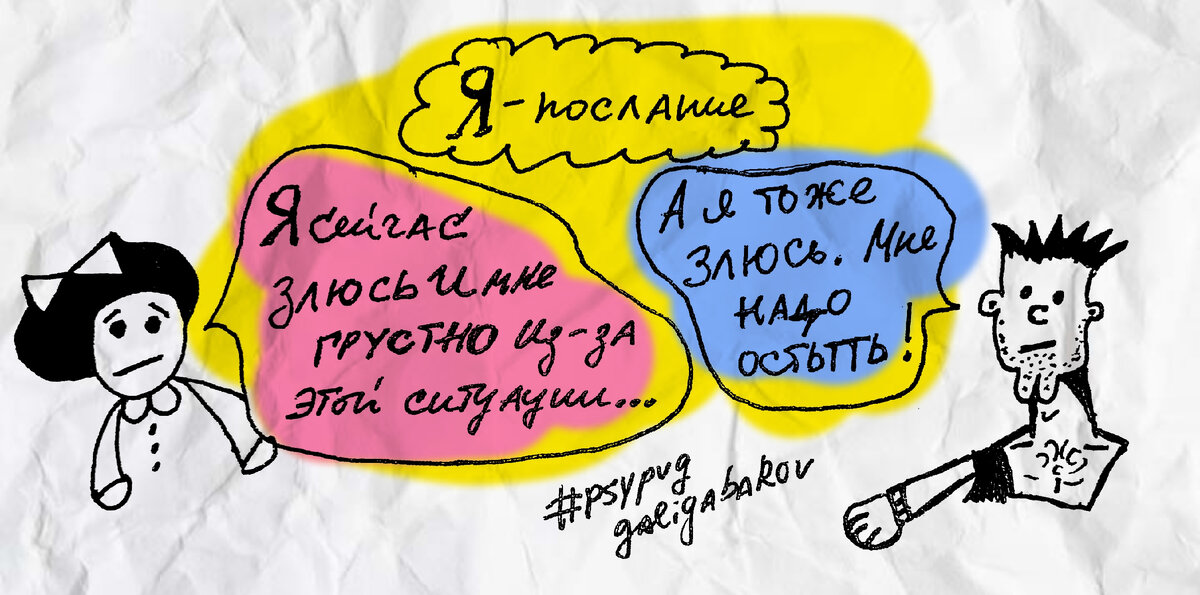 Я-послание
Я сейчас
злюсь и мне
грустно из-за
этой ситуации...
А я тоже
злюсь. Мне
надо
остыть!
#psypug
galigabarov